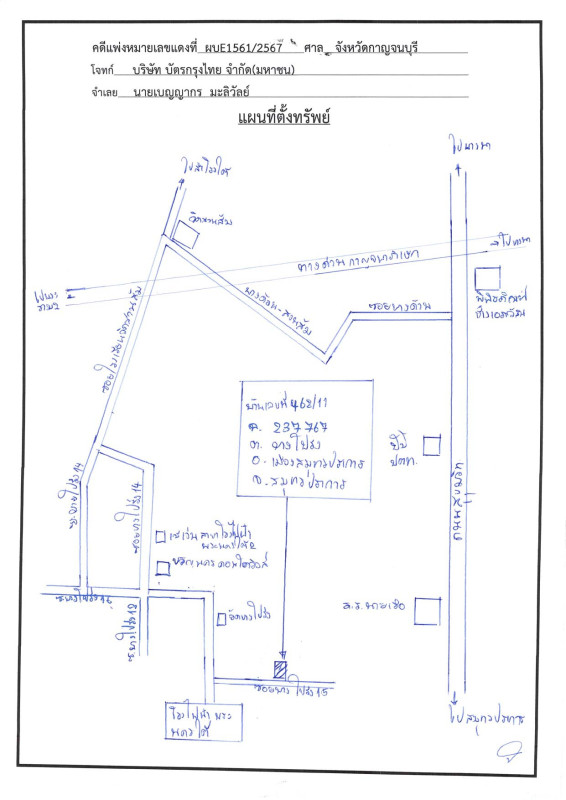 คดีแพ่งหมายเลขแดงที่ ผบE1561/2567 ศาล จังหวัดกาญจนบุรี
โจทก์ บริษัท บัตรกรุงไทย จำกัด(มหาชน)
จำเลย นายเบญญากร มะลิวัลย์
แผนที่ตั้งทรัพย์
ไปบางนา
ไปสำโรงใต้
วัดสวนส้ม
ทางด่วนกาญจนาภิเษก
ไปบางนา
ไปพระราม2
บางด้วน-สวนส้ม
ซอยบางด้วน
พิพิธภัณฑ์ช้างเอราวัณ
ซอยโรงเรียนวัดสวนส้ม
บ้านเลขที่ 462/11
ฉ. 237767
ต. บางโปรง
อ. เมืองสมุทรปราการ
จ. สมุทรปราการ
ปั๊ม
ปตท.
ถนนสุขุมวิท
ซ.บางโปรง 14
ซอยบางโปรง 14
เซเว่น สาขาโรงไฟฟ้า
พระนครใต้2
วัดบางโปรง
ร.ร. นายเรือ
ซอยบางโปรง 15
โรงไฟฟ้าพระ
นครใต้
ไปสมุทรปราการ